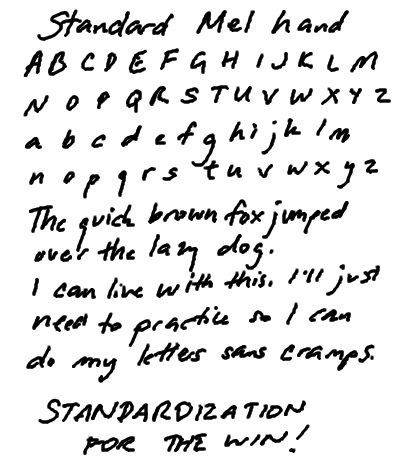 Standard Mel hand
A B C D E F G H I J K L M
N O P Q R S T U V W X Y Z
a b c d e f g h i j k l m
n o p q r s t u v w x y z
The quick brown fox jumped
over the lazy dog.
I can live with this. I'll just
need to practice so I can
do my letters sans cramps.
STANDARDIZATION
FOR THE WIN!